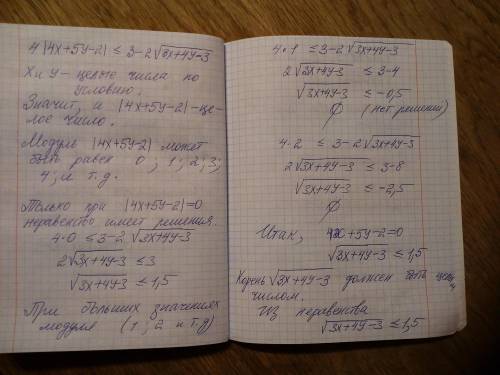 4|4x+5y-2| ≤ 3-2√3x+4y-3
x и y - целые числа по
условию.
Значит, и |4x+5y-2| - це-
лое число.
Модуль |4x+5y-2| может
быть равен 0; 1; 2; 3;
4; и т.д.
Только при |4x+5y-2|=0
неравенство имеет решения.
4·0 ≤ 3-2√3x+4y-3
2√3x+4y-3 ≤ 3
√3x+4y-3 ≤ 1,5
При больших значениях
модуля (1; 2 и т.д)
4·1 ≤ 3-2√3x+4y-3
2√3x+4y-3 ≤ 3-4
√3x+4y-3 ≤ -0,5
∅ (нет решений)
4·2 ≤ 3-2√3x+4y-3
2√3x+4y-3 ≤ 3-8
√3x+4y-3 ≤ -2,5
∅
Итак, 4x+5y-2=0
√3x+4y-3 ≤ 1,5
Корень √3x+4y-3 должен быть
числом.
Из неравенства
√3x+4y-3 ≤ 1,5